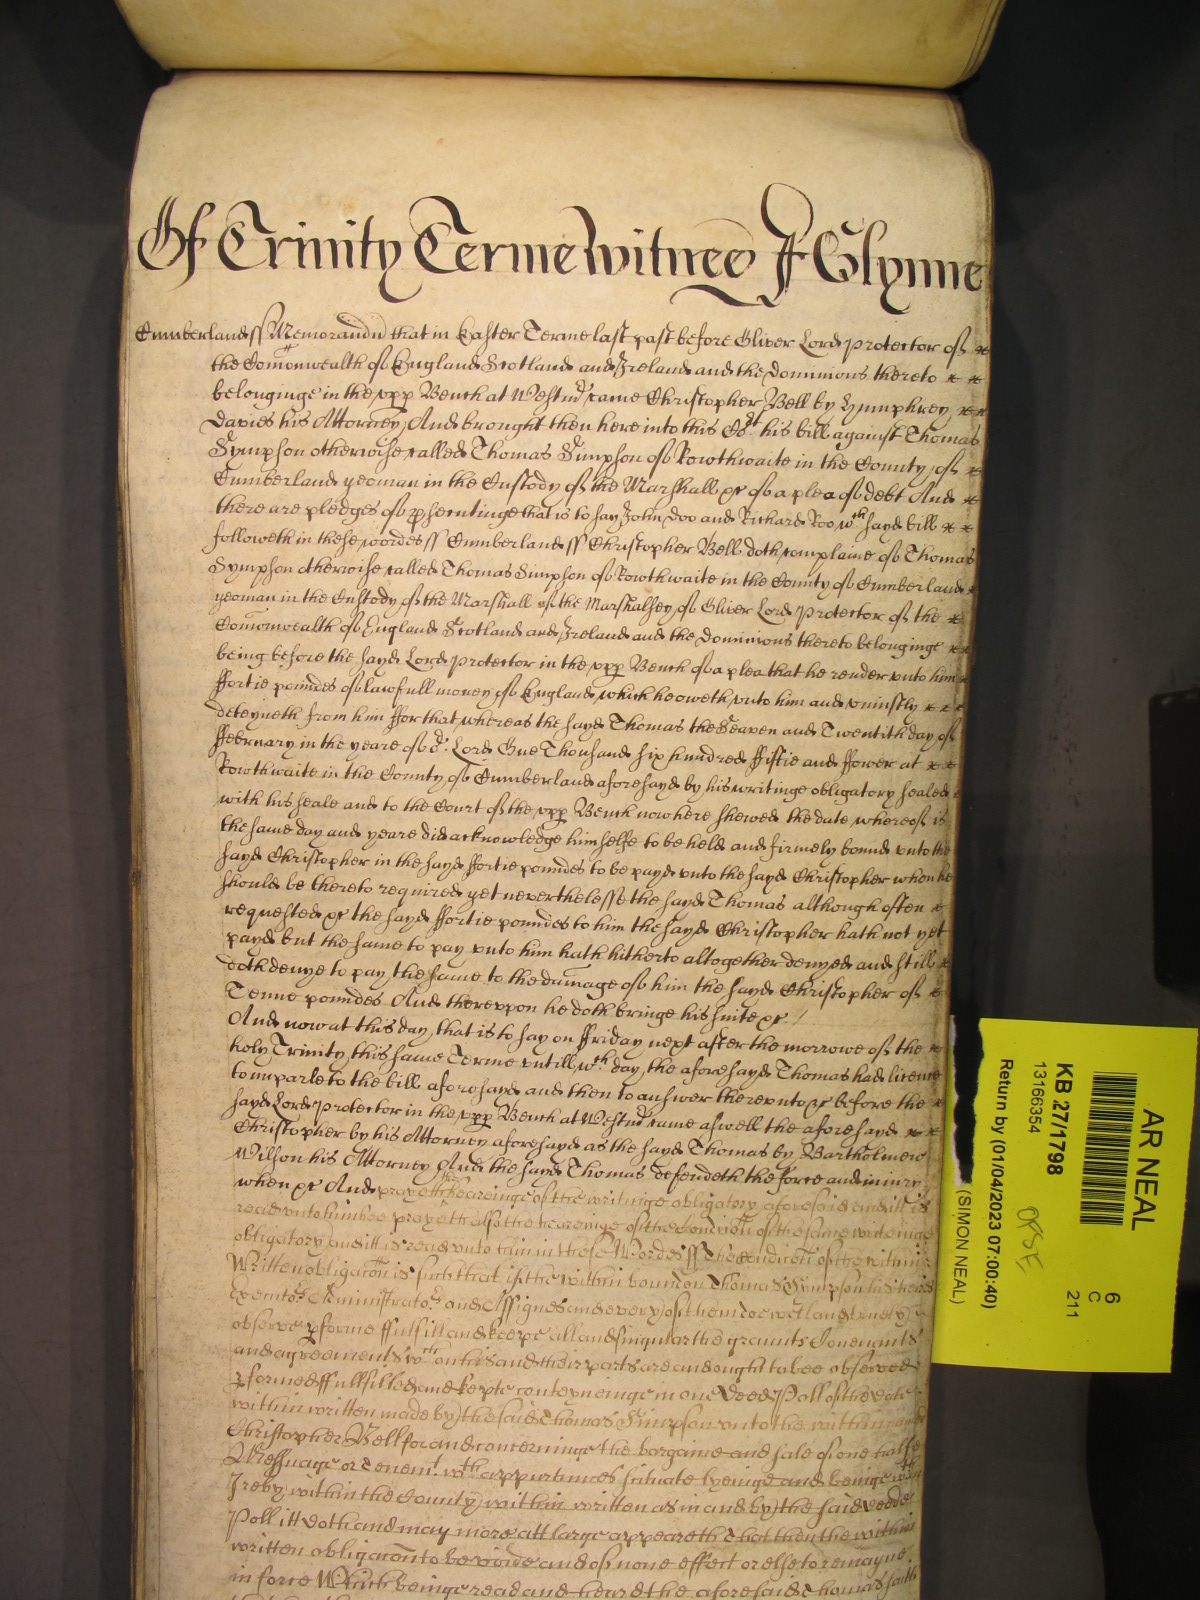 Of Trinity Terme Witnes J Glynne
Cumberland ss Memorand that in Easter Terme last past before Oliver Lord Protector of
the Comonwealth of England Scotland and Ireland and the Dominions thereto
belonginge in the upp Bench at Westmr came Christopher Bell by Humphrey
Davies his Attorney And brought then here into this Cort his bill against Thomas
Sympson otherwise called Thomas Simpson of Rowthwaite in the County of
Cumberland yeoman in the Custody of the Marshall &c of a plea of debt And
there are pledges of psecutinge that is to say John Doo and Richard Roo wch sayd bill
followeth in these wordes ss Cumberland ss Christopher Bell doth complaine of Thomas
Sympson otherwise called Thomas Simpson of Rowthwaite in the County of Cumberland
yeoman in the Custody of the Marshall of the Marshalsey of Oliver Lord Protector of the
Comonwealth of England Scotland and Ireland and the Dominions thereto belonginge
being before the sayd Lord Protector in the upp Bench of a plea that he render unto him
ffortie poundes of lawfull money of England which he oweth unto him and uniustly
deteyneth from him ffor that whereas the sayd Thomas the Seaven and Twentith day of
ffebruary in the yeare of or Lord One Thousand six hundred ffiftie and ffower at
Rowthwaite in the County of Cumberland aforesayd by his writinge obligatory sealed
with his seale and to the Court of the upp Bench now here shewed the date whereof is
the same day and yeare did acknowledge himselfe to be held and firmely bound unto the
sayd Christopher in the sayd ffortie poundes to be payd unto the sayd Christopher when he
should be thereto required yet neverthelesse the sayd Thomas although often
requested &c the sayd ffortie poundes to him the sayd Christopher hath not yet
payd but the same to pay unto him hath hitherto altogether denyed and still
doth denye to pay the same to the damage of him the sayd Christopher of
Tenne poundes And thereupon he doth bringe his suite &c
And now at this day that is to say on ffriday next after the morrowe of the
holy Trinity this same Terme untill wch day the aforesayd Thomas had licence
to imparle to the bill aforesayd and then to answer thereunto &c before the
sayd Lord Protector in the upp Bench at Westmr came aswell the aforesayd
Christopher by his Attorney aforesayd as the sayd Thomas by Bartholmew
Wilson his Attorney And the sayd Thomas defendeth the force and iniury
when &c And prayeth the hearinge of the writinge obligatory aforesaid and itt is
read unto him hee prayeth also the heareinge of the Condicon of the same writeinge
obligatory and itt is read unto him in these Wordes ss The condicon of the within
Written obligacon is such that if the within bounden Thomas Simpson his heires
Executors Administrators and Assignes and every of them doe well and truely
observe pforme ffulfill and keepe all and singular the graunts Covenants
and agreements wch on his and their parts are and ought to bee observed
pformed ffullfilled and kepte conteyneinge in one Deed Poll of the date
within written made by the said Thomas Simpson unto the within named
Christopher Bell for and concerninge the bargaine and sale of one halfe
Messuage or Tenemt wth appurtinces situate lyeinge and beinge
Ireby within the County within written as in and by the said deede
Poll itt doth and may more att large appeare that then the within
written obligacon to be voide and of none effect or else to remayne
in force Which beinge read and heard the aforesaid Thomas saith
AR NEAL
6
C
211
KB 27/1798
13166354
Return by (01/04/2023 07:00:40)
(SIMON NEAL)